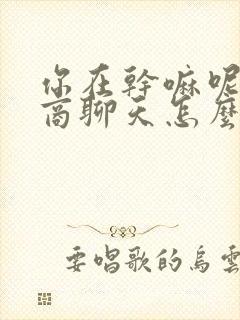 你在幹嘛呢
商聊天怎麼
要唱歌的烏雲